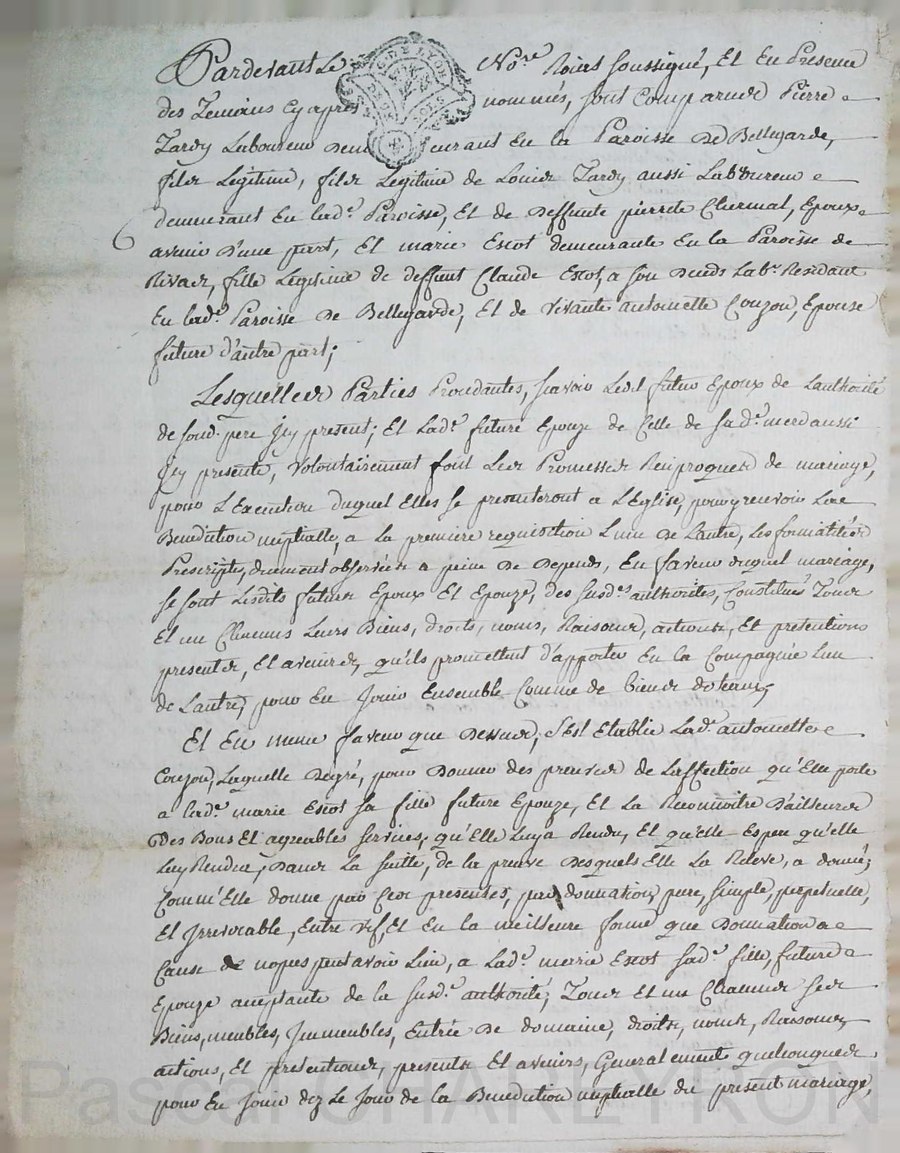 Pardevant Le No.re Roial soussigné, Et En Presence
des Temoins cy apres nommés, sont Comparues Pierre
Tardy Laboureur demeurant En la Paroisse De Bellegarde,
fils Legitime, fils Legitime de Louis Tardy aussi Laboureur
demeurant En lad.e Paroisse, Et de Deffunte pierrete Chermat, Epoux
avenir D'une part, Et marie Escot demeurante En la Paroisse de
Rivas, fille Legitime de deffunt Claude Escot, a son Deceds Lab.r Residant
En lad.e Paroisse De Bellegarde, Et de Vivante antoinette Couzon, Epouse
future d'autre part;
Lesquelles Parties Procedantes, scavoir Ledit futur Epoux de L'authorité
de sond. pere Icy present; Et Lad.e future Epouze de Celle de sa d.e mere aussi
Icy presente, Volontairement font Les Promesses Reciproques de mariage,
pour L'Execution duquel Elles se presenteront a L'Eglise, pour y recevoir La
Benediction nuptialle, a La premiere requisition L'un De L'autre, Les formalités
Prescriptes, duement observées a peine De Depends, En faveur duquel mariage,
se sont Lesdits futurs Epoux Et Epouze, des susd.es authorités, Constitués Tous
Et un Chacuns Leurs Biens, droits, noms, Raisons, actions, Et pretentions
presents, Et avenirs, qu'ils promettent d'apporter En la Compagnie L'un
de L'autre, pour En Jouir Ensemble Comme de biens doteaux;
Et En meme faveur que Dessus, s'Est Etablie Lad.e antoinette
Couzon, Laquelle Degré, pour Donner des preuves de L'affection qu'Elle porte
a lad.e marie Escot sa fille future Epouze, Et La Reconnoitre D'ailleurs
Des Bons Et agreables services, qu'Elle Luy a Rendu, Et qu'elle Espere qu'elle
Luy Rendra, Dans La suitte, de la preuve Desquels Elle La Releve, a donné,
Comm'Elle donne par Ces presentes, par donnation, pure, simple, perpetuelle,
Et Irrevocable, Entre Vif, Et En la meilleure forme que Donnation a
Cause de nopces peut avoir Lieu, a Lad.e marie Escot sad.e fille, future
Epouze acceptante de la susd.e authorité; Tous Et un Chacuns ses
Biens, meubles, Immeubles, Entrée De domaine, droits, noms, Raisons,
actions, Et pretentions, presents Et avenirs, Generalement quelconques
pour En Jouir dez Le Jour de la Benediction nuptialle du present mariage,
6
Pascal CHAREYRON